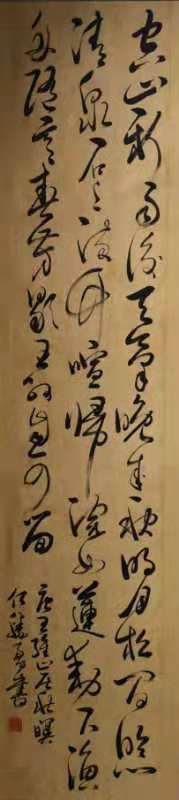 空山新雨後天氣晚來秋明月松間照
清泉石上流竹喧歸浣女蓮動下漁
舟隨意春芳歇王孫自可留
唐王維山居秋暝
書